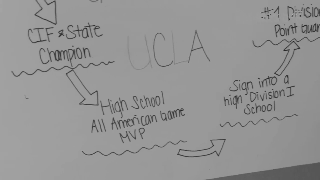 CIF & State
Champion
UCLA
High School
All American Game
MVP
Sign into a
high Division I
School
#1 Division
Point Guard